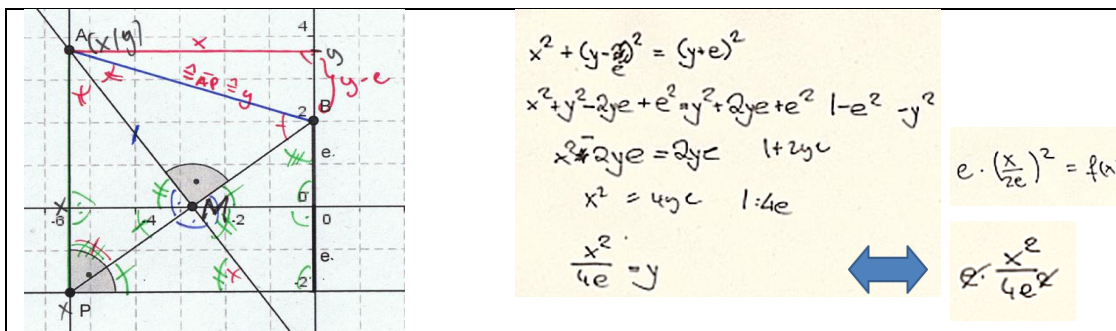 A(x/y)
x
4
y
≙ AP ≙ y
y-e
2
B
e
x
-6
-4
M
-2
0
0
e
-2
x P
x² + (y-e)² = (y+e)²
x²+y²-2ye+e²=y²+2ye+e² |-e² -y²
x²-2ye = 2ye |+2ye
x² = 4ye |:4e
x²/4e = y
e·(x/2e)² = f(x
e· x²/4e²